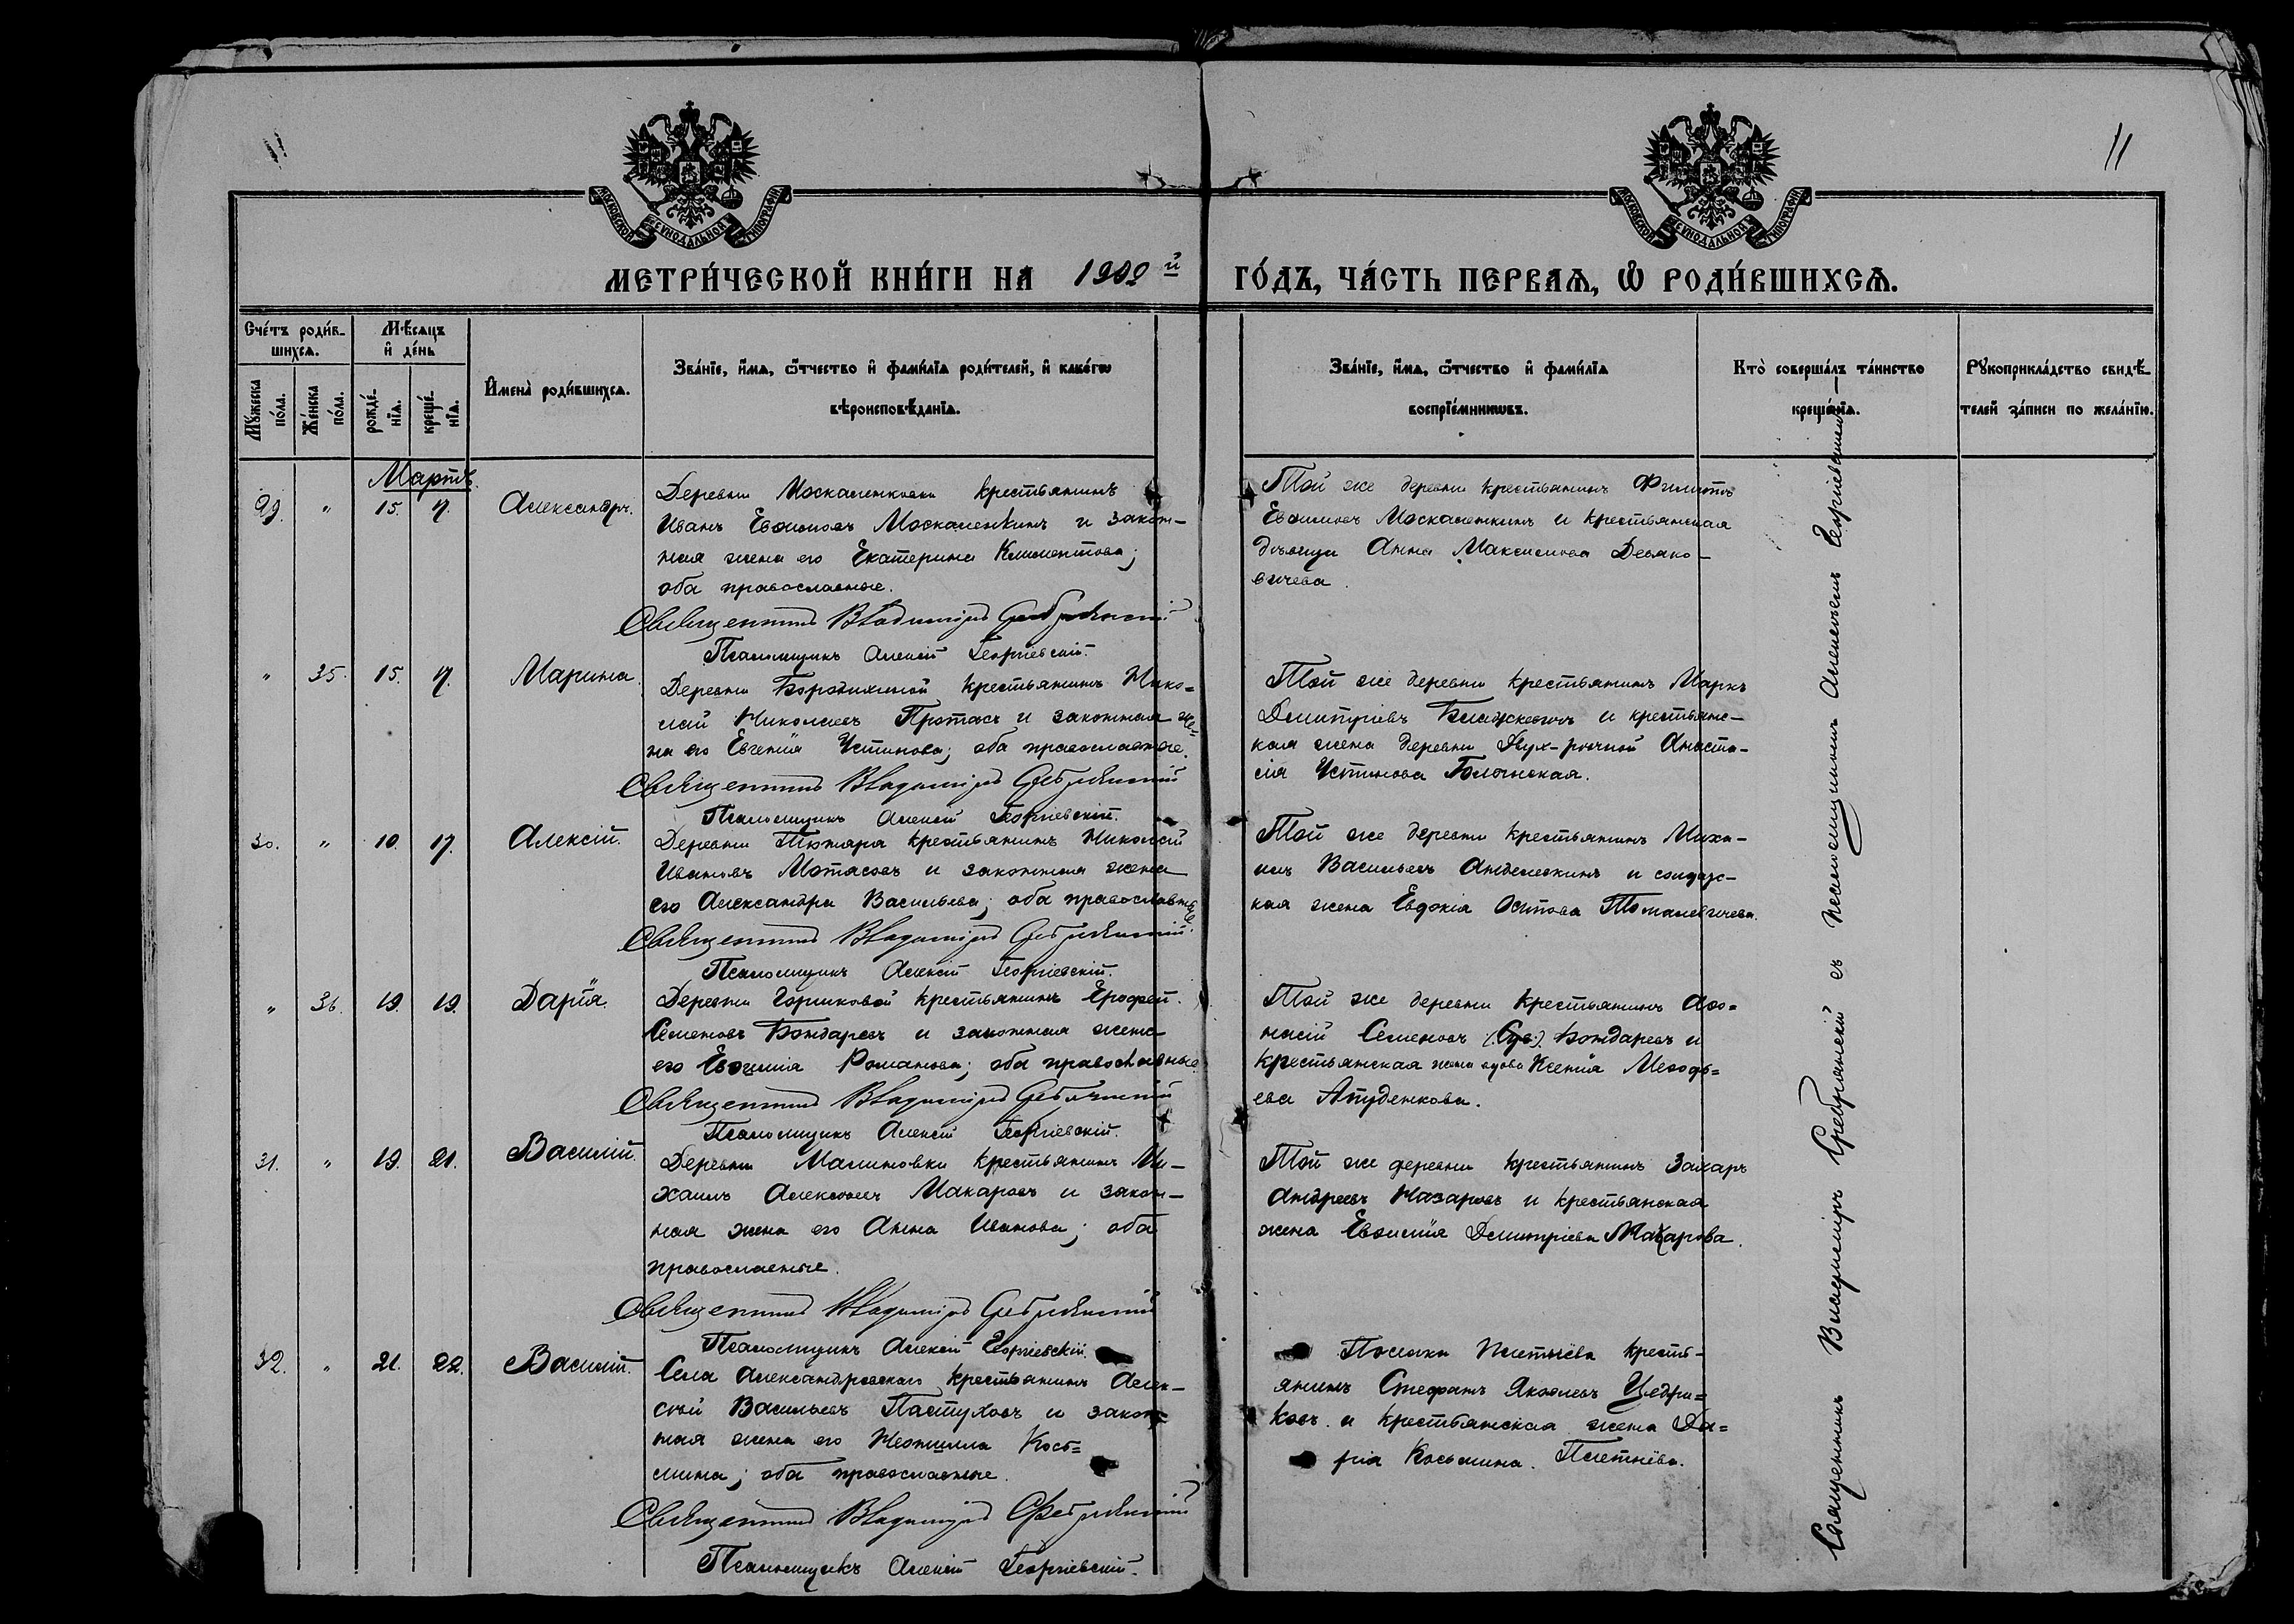 11
МОСКОВСКОЙ СѴНОДАЛЬНОЙ ТИПОГРАФІИ
МОСКОВСКОЙ СѴНОДАЛЬНОЙ ТИПОГРАФІИ
МЕТРИ́ЧЕСКОЙ КНИ́ГИ НА 1902 й ГО́ДЪ, ЧА́СТЬ ПЕРВАѦ, Ѡ҆ РОДИ́ВШИХСѦ.
Сче́тъ роди́в-
шихсѧ.
Мꙋжеска по́ла.
Же́нска по́ла.
Мѣ́сѧцъ и҆ де́нь
рожде́-нїѧ.
креще́-нїѧ.
И҆мена̀ роди́вшихсѧ.
Зва́нїе, и҆́мѧ, ѻ҆́тчество и҆ фами́лїѧ роди́телей, и҆ како́гѡ
вѣроисповѣ́данїѧ.
Зва́нїе, и҆́мѧ, ѻ҆́тчество и҆ фами́лїѧ
воспрїе́мникѡвъ.
Кто̀ соверша́лъ та́инство
креще́нїѧ.
Рꙋкоприкла́дство свидѣ́-
телей за́писи по жела́нїю.
Мартъ.
29. " 15. 17. Александръ.
Деревни крестьянинъ
Иванъ Евѳимовъ Москаленкинъ и закон-
ная жена его Екатерина Климентова;
оба православные.
Священникъ Владиміръ Сребрянскій
Псаломщикъ Алексій Георгіевскій.
Той же деревни крестьянинъ Филиппъ
Евѳимовъ Москаленкинъ и крестьянская
дѣвица Анна Максимова
" 35. 15. 17. Марина.
Деревни Бородихиной крестьянинъ Нико=
лай Николаевъ Протасъ и законная же=
на его Евгенія Устинова; оба православные.
Священникъ Владиміръ Сребрянскій
Псаломщикъ Алексій Георгіевскій.
Той же деревни крестьянинъ Маркъ
Димитріевъ и крестьянс-
кая жена деревни Анаста-
сія Устинова
30. " 10. 17. Алексій.
Деревни крестьянинъ Николай
Ивановъ Мотасовъ и законная жена
его Александра Васильева; оба православные.
Священникъ Владиміръ Сребрянскій
Псаломщикъ Алексій Георгіевскій.
Той же деревни крестьянинъ Миха-
илъ Васильевъ и солдатс-
кая жена Евдокія Осипова Томалевичева.
" 36. 19. 19. Дарія.
Деревни Горшковой крестьянинъ Ерофей
Семеновъ Бондаревъ и законная жена
его Евѳимія Романова; оба православные
Священникъ Владиміръ Сребрянскій
Псаломщикъ Алексій Георгіевскій.
Той же деревни крестьянинъ Аѳа=
насій Семеновъ Бондаревъ и
крестьянская вдова Ксенія Меѳодь=
ева Апуденкова.
31. " 19. 21. Василій.
Деревни Малиновки крестьянинъ Ми-
хаилъ Алексѣевъ Макаровъ и закон-
ная жена его Анна Иванова; оба
православные.
Священникъ Владиміръ Сребрянскій
Псаломщикъ Алексій Георгіевскій.
Той же деревни крестьянинъ Захаръ
Андреевъ Назаровъ и крестьянская
жена Евѳимія Димитріева Макарова.
32. " 21. 22. Василій.
Села Александровскаго крестьянинъ Алек-
сѣй Васильевъ Пастуховъ и закон-
ная жена его Неонилла Кось=
мина; оба православные.
Священникъ Владиміръ Сребрянскій
Псаломщикъ Алексій Георгіевскій.
Поселка Плетнёва кресть-
янинъ Стефанъ Яковлевъ Цедри=
ковъ и крестьянская жена Да=
рія Косьмина Плетнёва.
Священникъ Владиміръ Сребрянскій съ псаломщикомъ Алексѣемъ Георгіевскимъ